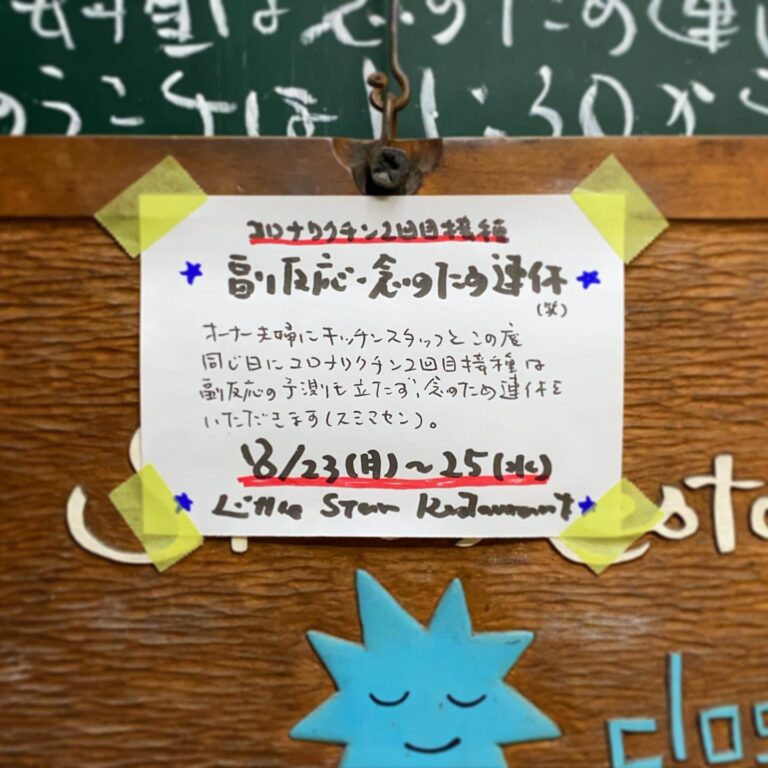 のうこそは11:30から
コロナワクチン2回目接種
副反応・念のため連休
(笑)
オーナー夫婦にキッチンスタッフとこの度
同じ日にコロナワクチン2回目接種は
副反応の予測も立たず、念のため連休を
いただきます(スミマセン)。
8/23(月)〜25(水)
Little Star Restaurant
clos